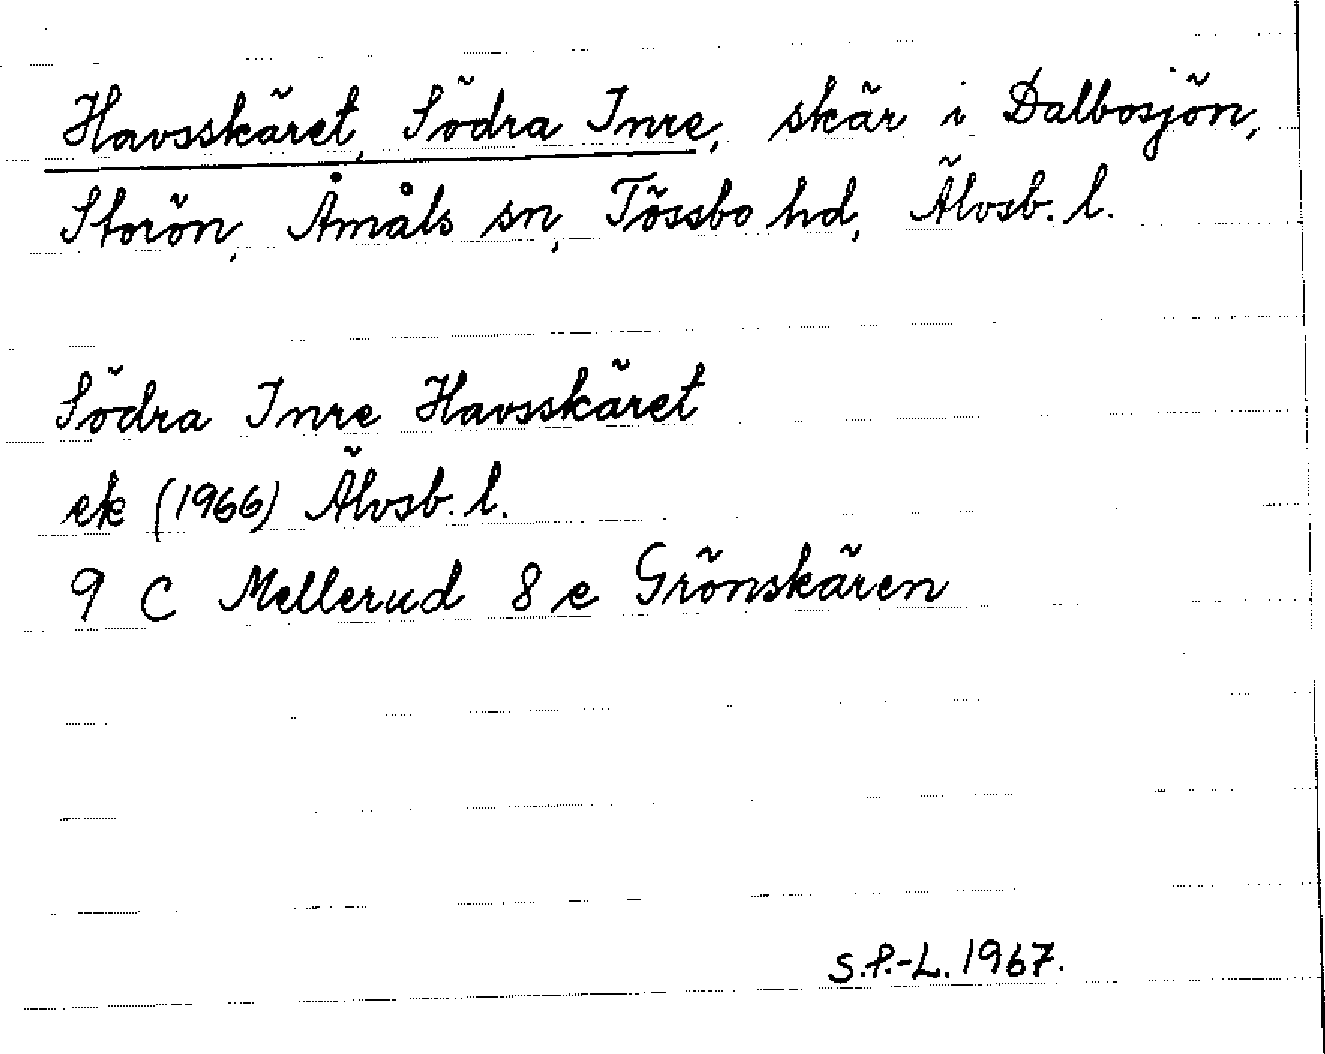 Havsskäret, Södra Inre, skär i Dalbosjön,
Storön, Åmåls sn, Tössbo hd, Älvsb. l.
Södra Inre Havsskäret
ek (1966) Älvsb. l.
9 C Mellerud 8 e Grönskären
S.P.-L. 1967.